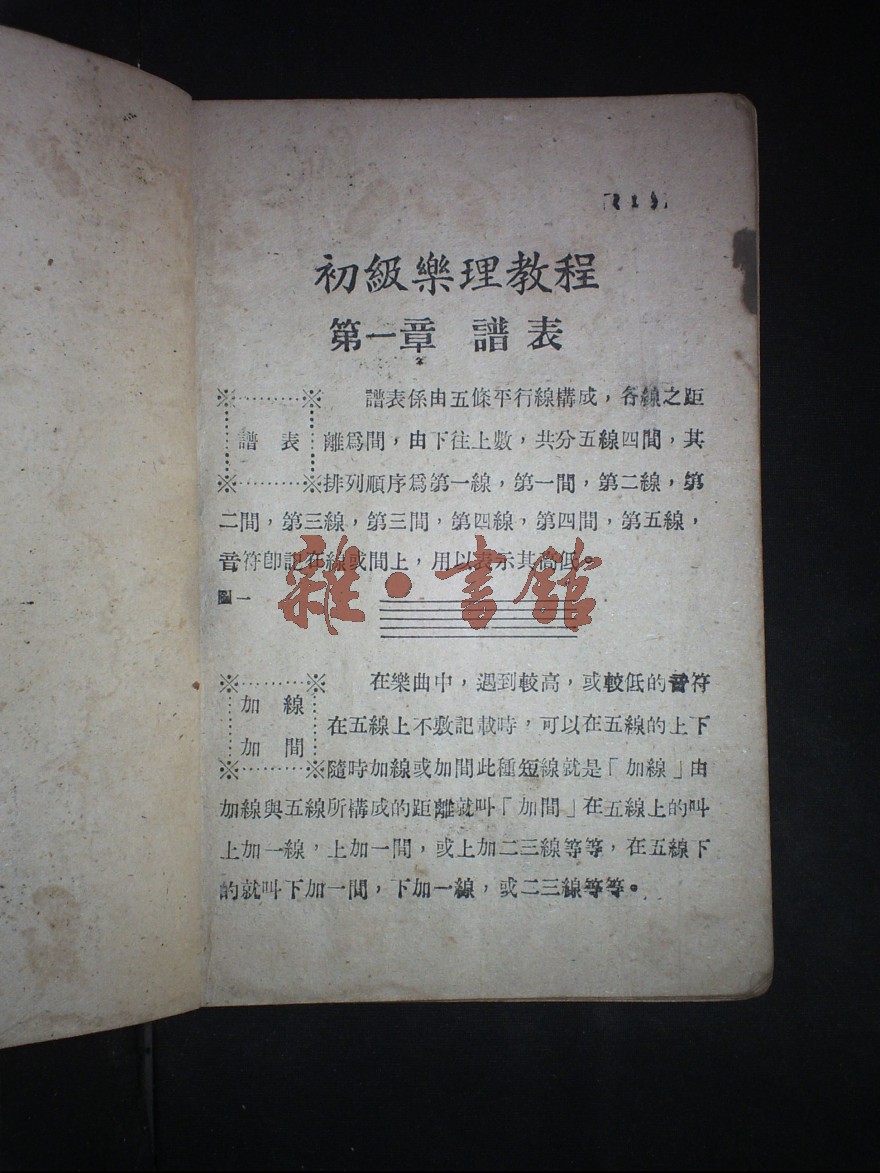 初級樂理教程
第一章 譜表
譜表
譜表係由五條平行線構成，各線之距
離爲間，由下往上數，共分五線四間，其
排列順序爲第一線，第一間，第二線，第
二間，第三線，第三間，第四線，第四間，第五線，
音符即記在線或間上，用以表示其高低。
圖一
雜·書館
加線
加間
在樂曲中，遇到較高，或較低的音符
在五線上不敷記載時，可以在五線的上下
隨時加線或加間此種短線就是「加線」由
加線與五線所構成的距離就叫「加間」在五線上的叫
上加一線，上加一間，或上加二三線等等，在五線下
的就叫下加一間，下加一線，或二三線等等。